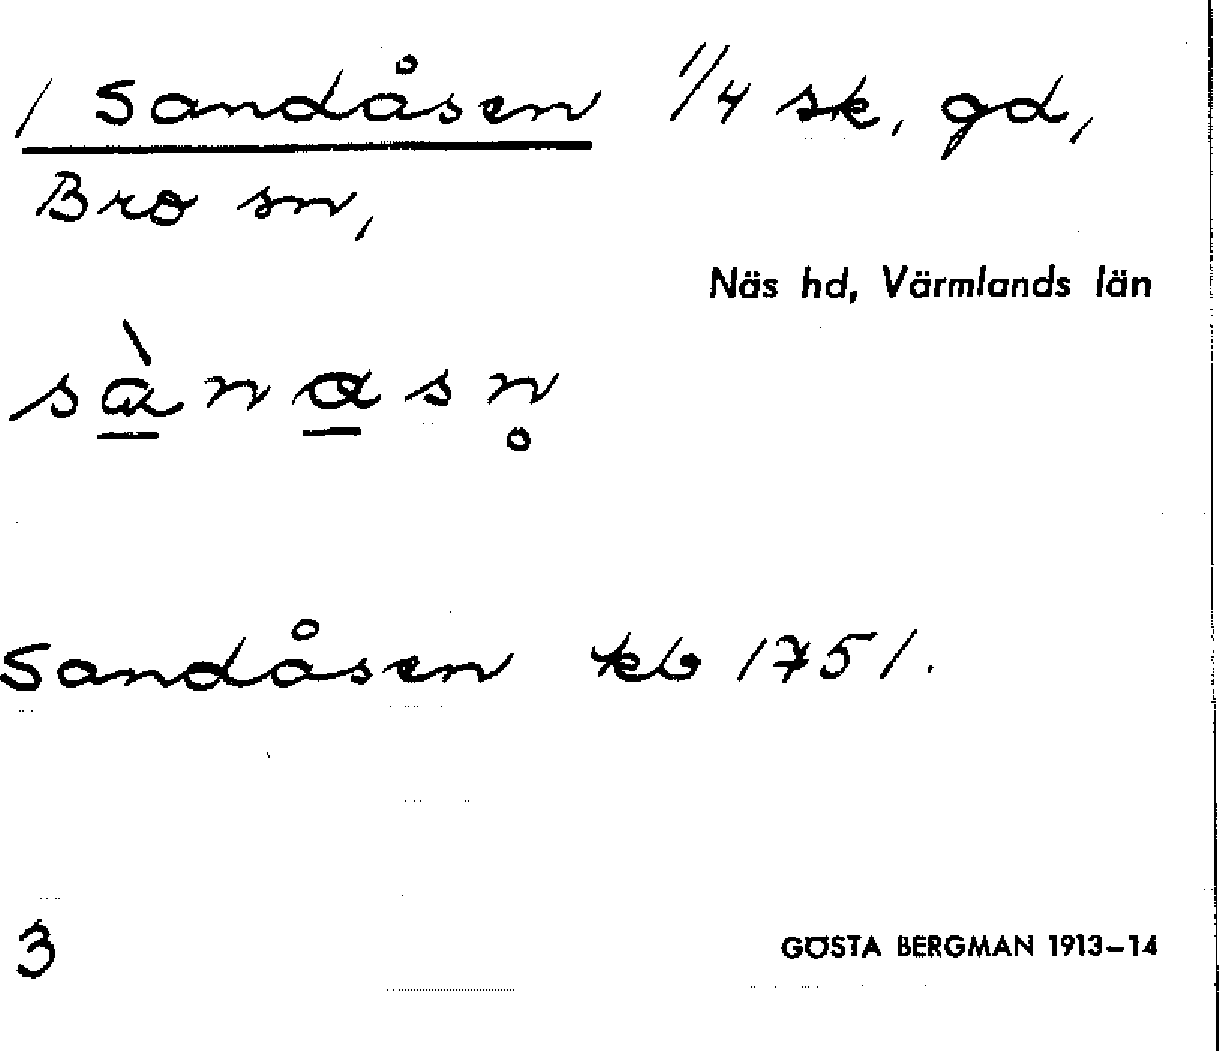 / Sandåsen 1/4 sk, gd,
Bro sn,
Näs hd, Värmlands län
sànɑsn̥
Sandåsen kb 1751.
3
GÖSTA BERGMAN 1913–14